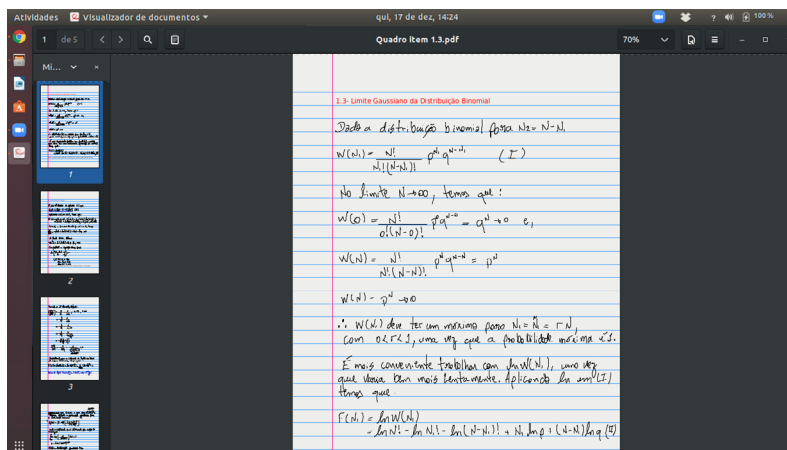 Atividades Visualizador de documentos qui, 17 de dez, 14:24 ? 100 %
1 de 5 Quadro item 1.3.pdf 70%
Mi...
1
2
3
1.3- Limite Gaussiano da Distribuição Binomial
Dada a distribuição binomial para N₂ = N-N₁
W(N₁) = N!/(N₁!(N-N₁)!) p^N₁ q^(N-N₁) (I)
No limite N→∞, temos que:
W(0) = N!/(0!(N-0)!) p⁰q^(N-0) = q^N → 0 e,
W(N) = N!/(N!(N-N)!) p^N q^(N-N) = p^N
W(N) = p^N → 0
∴ W(N₁) deve ter um máximo para N₁ = N̄₁ = r N,
com 0<r<1, uma vez que a probabilidade máxima é 1.
É mais conveniente trabalhar com ln W(N₁), uma vez
que varia bem mais lentamente. Aplicando ln em (I)
temos que
F(N₁) = ln W(N₁)
= ln N! - ln N₁! - ln(N-N₁)! + N₁ ln p + (N-N₁) ln q (II)